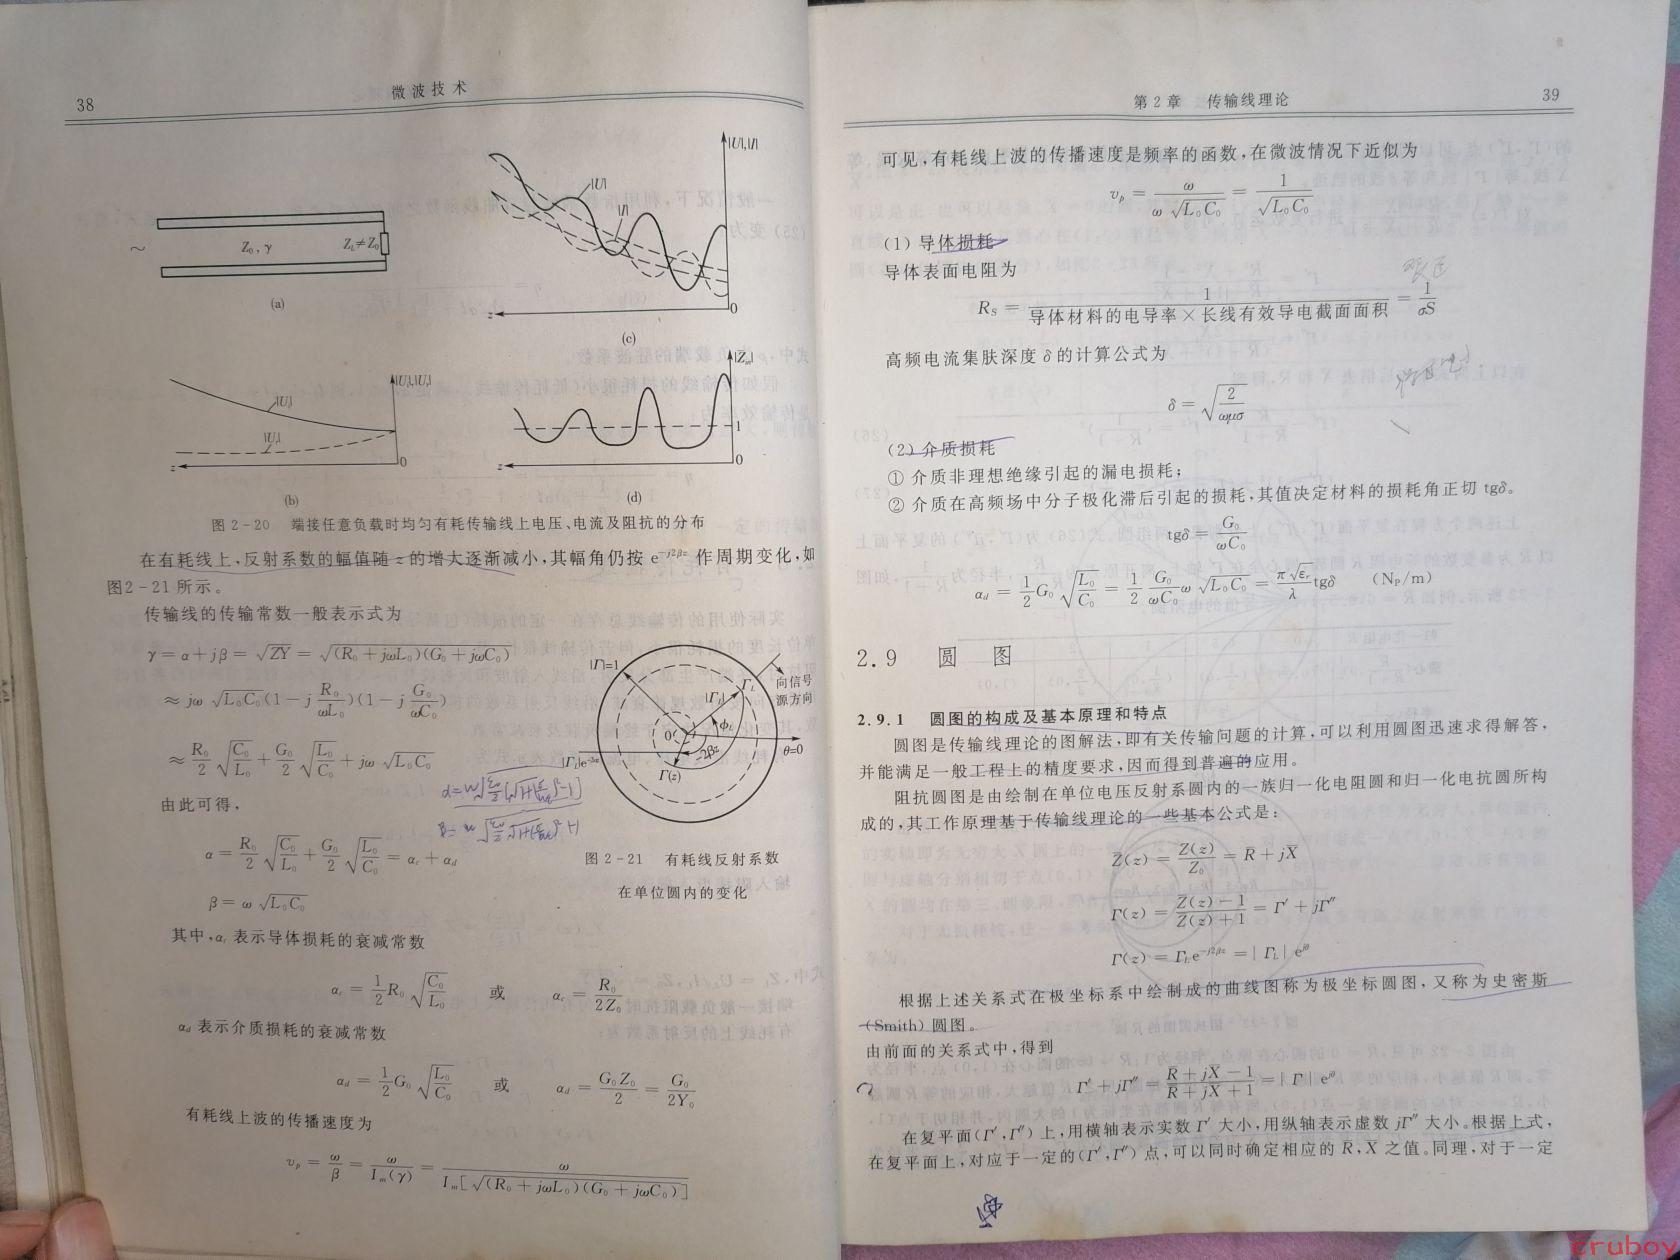 38
微波技术
Z₀, γ
Z_L≠Z₀
(a)
|U|,|I|
|U|
|I|
z
0
(c)
|U_i|,|U_r|
|U_i|
|U_r|
z
0
(b)
|Z_in|
1
z
0
(d)
图 2-20 端接任意负载时均匀有耗传输线上电压、电流及阻抗的分布
在有耗线上,反射系数的幅值随 z 的增大逐渐减小,其幅角仍按 e^{-j2βz} 作周期变化,如
图2-21 所示。
传输线的传输常数一般表示式为
γ = α + jβ = √(ZY) = √((R₀ + jωL₀)(G₀ + jωC₀))
≈ jω √(L₀C₀)(1 - j R₀/ωL₀)(1 - j G₀/ωC₀)
≈ R₀/2 √(C₀/L₀) + G₀/2 √(L₀/C₀) + jω √(L₀C₀)
由此可得,
α = R₀/2 √(C₀/L₀) + G₀/2 √(L₀/C₀) = α_r + α_d
β = ω √(L₀C₀)
|Γ|=1
|Γ_L|
Γ_L
向信号
源方向
φ_L
0
2βz
θ=0
Γ(z)
图 2-21 有耗线反射系数
在单位圆内的变化
其中,α_r 表示导体损耗的衰减常数
α_r = 1/2 R₀ √(C₀/L₀) 或 α_r = R₀/2Z₀
α_d 表示介质损耗的衰减常数
α_d = 1/2 G₀ √(L₀/C₀) 或 α_d = G₀Z₀/2 = G₀/2Y₀
有耗线上波的传播速度为
v_p = ω/β = ω/I_m(γ) = ω/I_m[√((R₀ + jωL₀)(G₀ + jωC₀))]
第 2 章 传输线理论
39
可见,有耗线上波的传播速度是频率的函数,在微波情况下近似为
v_p = ω/(ω √(L₀C₀)) = 1/√(L₀C₀)
(1) 导体损耗
导体表面电阻为
R_S = 1/(导体材料的电导率×长线有效导电截面面积) = 1/σS
高频电流集肤深度 δ 的计算公式为
δ = √(2/ωμσ)
(2) 介质损耗
① 介质非理想绝缘引起的漏电损耗;
② 介质在高频场中分子极化滞后引起的损耗,其值决定材料的损耗角正切 tgδ。
tgδ = G₀/ωC₀
α_d = 1/2 G₀ √(L₀/C₀) = 1/2 G₀/ωC₀ ω √(L₀C₀) = π√ε_r/λ tgδ (N_P/m)
2.9 圆 图
2.9.1 圆图的构成及基本原理和特点
圆图是传输线理论的图解法,即有关传输问题的计算,可以利用圆图迅速求得解答,
并能满足一般工程上的精度要求,因而得到普遍的应用。
阻抗圆图是由绘制在单位电压反射系圆内的一族归一化电阻圆和归一化电抗圆所构
成的,其工作原理基于传输线理论的一些基本公式是:
Z̄(z) = Z(z)/Z₀ = R̄ + jX̄
Γ(z) = (Z̄(z) - 1)/(Z̄(z) + 1) = Γ′ + jΓ″
Γ(z) = Γ_L e^{-j2βz} = |Γ_L| e^{jθ}
根据上述关系式在极坐标系中绘制成的曲线图称为极坐标圆图,又称为史密斯
(Smith) 圆图。
由前面的关系式中,得到
Γ′ + jΓ″ = (R + jX - 1)/(R + jX + 1) = |Γ| e^{jθ}
在复平面(Γ′,Γ″) 上,用横轴表示实数 Γ′ 大小,用纵轴表示虚数 jΓ″ 大小。根据上式,
在复平面上,对应于一定的(Γ′,Γ″) 点,可以同时确定相应的 R, X 之值。同理,对于一定
cruboy